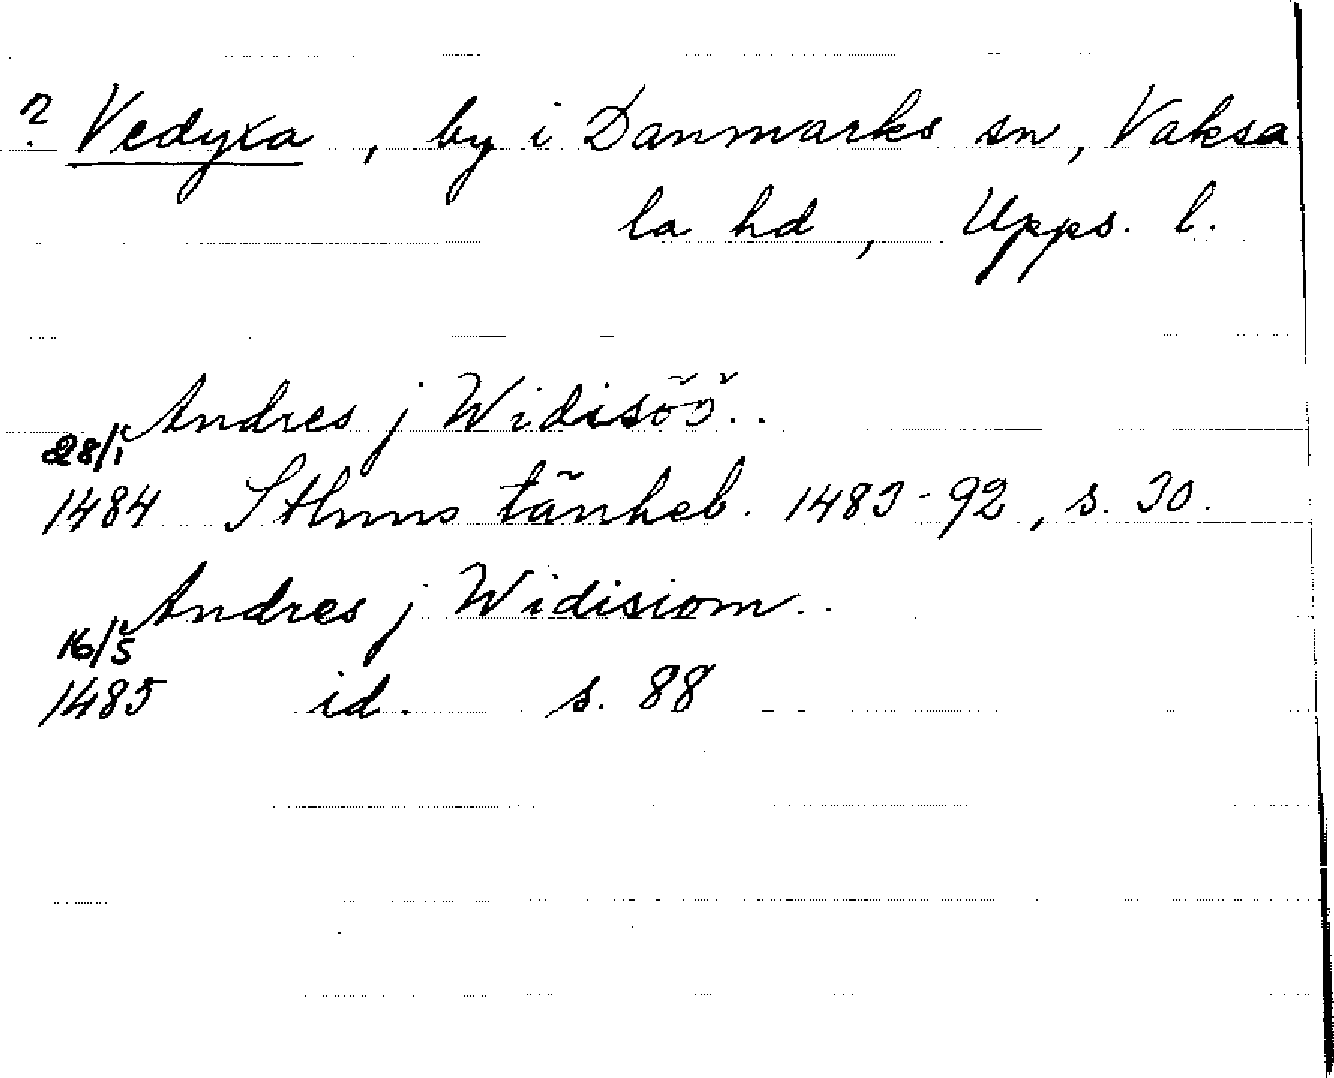 ? Vedyxa, by i Danmarks sn, Vaksa
la hd, Upps. l.
Andres j Widisöö..
28/1
1484 Sthms tänkeb. 1483-92, s. 30.
Andres j Widisiom..
16/5
1485 id. s. 88